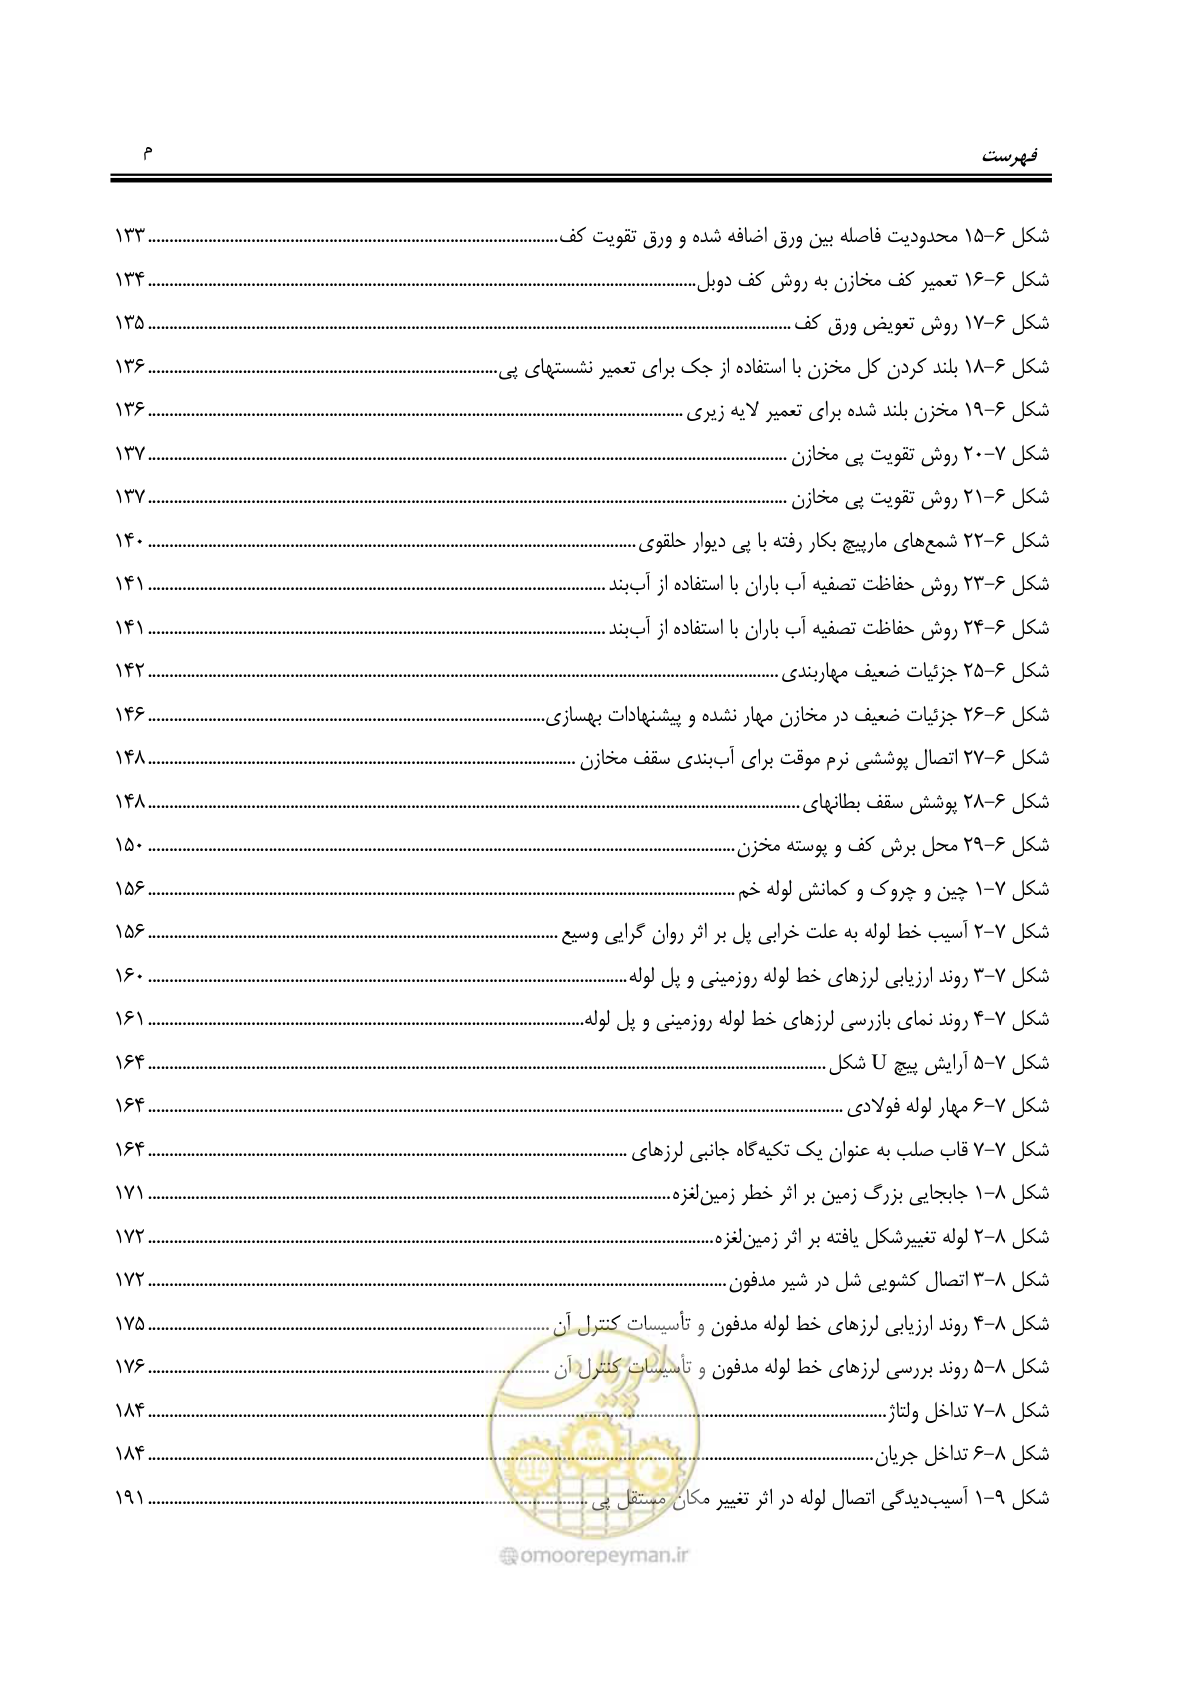 فهرست م
شکل ۶-۱۵ محدودیت فاصله بین ورق اضافه شده و ورق تقویت کف ۱۳۳
شکل ۶-۱۶ تعمیر کف مخازن به روش کف دوبل ۱۳۴
شکل ۶-۱۷ روش تعویض ورق کف ۱۳۵
شکل ۶-۱۸ بلند کردن کل مخزن با استفاده از جک برای تعمیر نشستهای پی ۱۳۶
شکل ۶-۱۹ مخزن بلند شده برای تعمیر لایه زیری ۱۳۶
شکل ۷-۲۰ روش تقویت پی مخازن ۱۳۷
شکل ۶-۲۱ روش تقویت پی مخازن ۱۳۷
شکل ۶-۲۲ شمع‌های مارپیچ بکار رفته با پی دیوار حلقوی ۱۴۰
شکل ۶-۲۳ روش حفاظت تصفیه آب باران با استفاده از آب‌بند ۱۴۱
شکل ۶-۲۴ روش حفاظت تصفیه آب باران با استفاده از آب‌بند ۱۴۱
شکل ۶-۲۵ جزئیات ضعیف مهاربندی ۱۴۲
شکل ۶-۲۶ جزئیات ضعیف در مخازن مهار نشده و پیشنهادات بهسازی ۱۴۶
شکل ۶-۲۷ اتصال پوششی نرم موقت برای آب‌بندی سقف مخازن ۱۴۸
شکل ۶-۲۸ پوشش سقف بطانهای ۱۴۸
شکل ۶-۲۹ محل برش کف و پوسته مخزن ۱۵۰
شکل ۷-۱ چین و چروک و کمانش لوله خم ۱۵۶
شکل ۷-۲ آسیب خط لوله به علت خرابی پل بر اثر روان گرایی وسیع ۱۵۶
شکل ۷-۳ روند ارزیابی لرزهای خط لوله روزمینی و پل لوله ۱۶۰
شکل ۷-۴ روند نمای بازرسی لرزهای خط لوله روزمینی و پل لوله ۱۶۱
شکل ۷-۵ آرایش پیچ U شکل ۱۶۴
شکل ۷-۶ مهار لوله فولادی ۱۶۴
شکل ۷-۷ قاب صلب به عنوان یک تکیه‌گاه جانبی لرزهای ۱۶۴
شکل ۸-۱ جابجایی بزرگ زمین بر اثر خطر زمین‌لغزه ۱۷۱
شکل ۸-۲ لوله تغییرشکل یافته بر اثر زمین‌لغزه ۱۷۲
شکل ۸-۳ اتصال کشویی شل در شیر مدفون ۱۷۲
شکل ۸-۴ روند ارزیابی لرزهای خط لوله مدفون و تأسیسات کنترل آن ۱۷۵
شکل ۸-۵ روند بررسی لرزهای خط لوله مدفون و تأسیسات کنترل آن ۱۷۶
شکل ۸-۷ تداخل ولتاژ ۱۸۴
شکل ۸-۶ تداخل جریان ۱۸۴
شکل ۹-۱ آسیب‌دیدگی اتصال لوله در اثر تغییر مکان مستقل پی ۱۹۱
امور پیمان
@omoorepeyman.ir